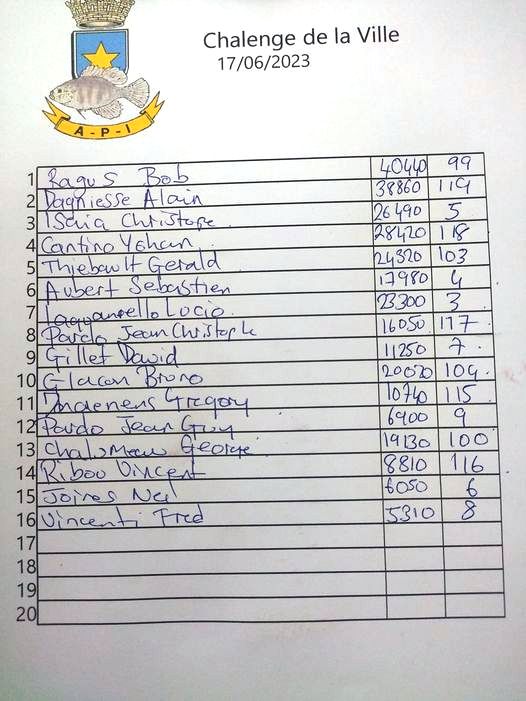 A-P-I
Chalenge de la Ville
17/06/2023
1 Ragus Bob 40440 99
2 Dagniesse Alain 38860 119
3 Isaia Christophe 26490 5
4 Cantino Yohan 28420 118
5 Thiebault Gerald 24320 103
6 Aubert Sebastien 17980 4
7 Lucio 23300 3
8 Pardo Jean Christophe 16050 117
9 Gillet David 11250 7
10 Glacon Bruno 20020 104
11 Gregory 10740 115
12 Pardo Jean Guy 6900 9
13 Chalumeau George 19130 100
14 Ribou Vincent 8810 116
15 Joires 6050 6
16 Vincenti Fred 5310 8
17
18
19
20